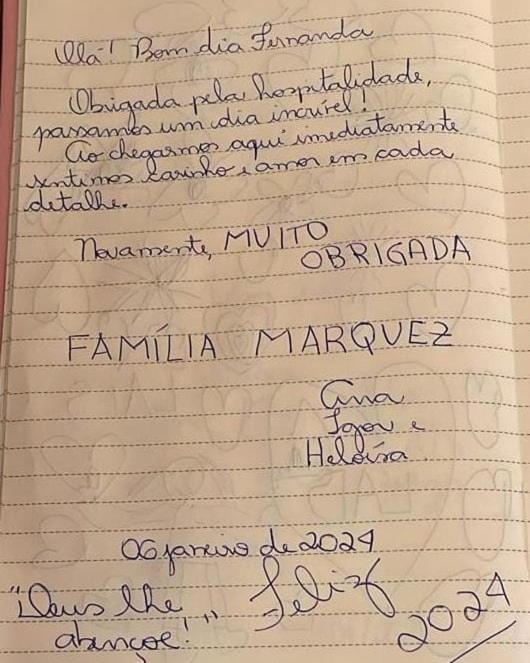 Olá! Bom dia Fernanda
Obrigada pela hospitalidade,
passamos um dia incrivel!
Ao chegarmos aqui imediatamente
sentimos carinho e amor em cada
detalhe.
Novamente, MUITO
OBRIGADA
FAMÍLIA MARQUEZ
Ana
Igor e
Heloísa
06 janeiro de 2024
"Deus lhe
abençoe!" Feliz
2024